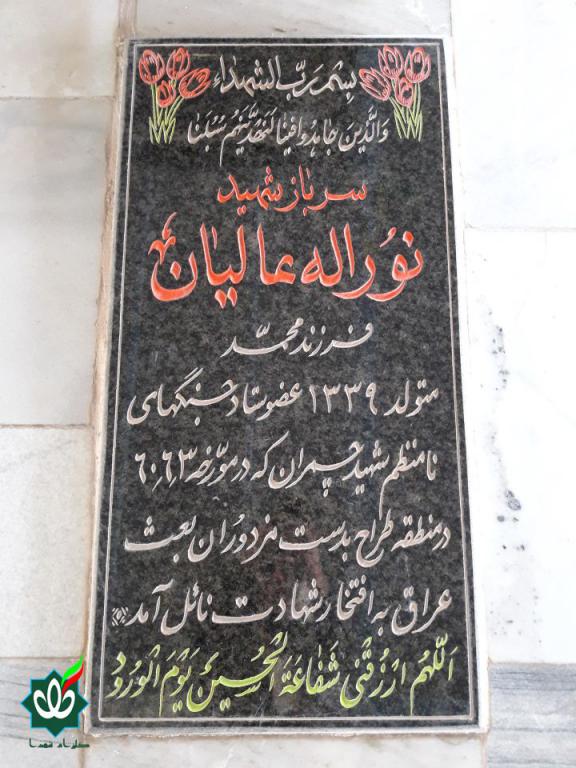 بسم رب الشهداء
والذین جاهدوا فینا لنهدینهم سبلنا
سرباز شهید
نوراله عمالیان
فرزند محمد
متولد ۱۳۳۹ عضو ستاد جنگهای
نامنظم شهید چمران که در مورخه ۶۰٫۶٫۳
در منطقه طراح بدست مزدوران بعث
عراق به افتخار شهادت نائل آمد
اللهم ارزقنی شفاعة الحسین یوم الورود